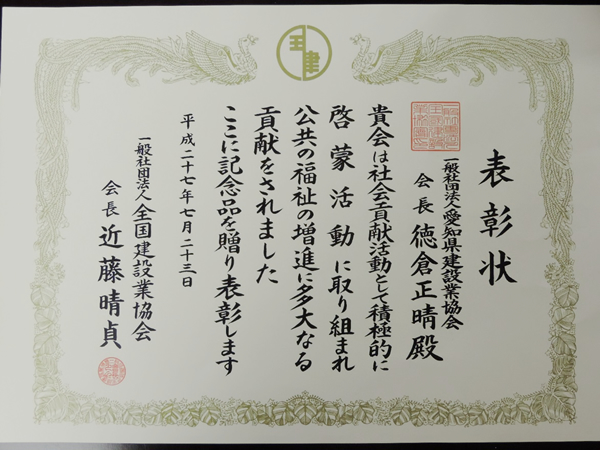 全建
表彰状
一般社団法人愛知県建設業協会
会長 徳倉正晴殿
貴会は社会貢献活動として積極的に
啓蒙活動に取り組まれ
公共の福祉の増進に多大なる
貢献をされました
ここに記念品を贈り表彰します
平成二十七年七月二十三日
一般社団法人全国建設業協会
会長 近藤晴貞